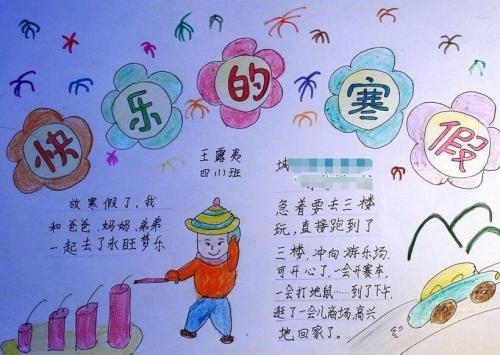 快乐的寒假
王露
四(1)班
放寒假了,我
和爸爸、妈妈、弟弟
一起去了永旺梦乐
城
急着要去三楼
玩,直接跑到了
三楼,冲向游乐场,
可开心了,一会开赛车,
一会打地鼠……到了下午,
逛了一会儿商场,高兴
地回家了。